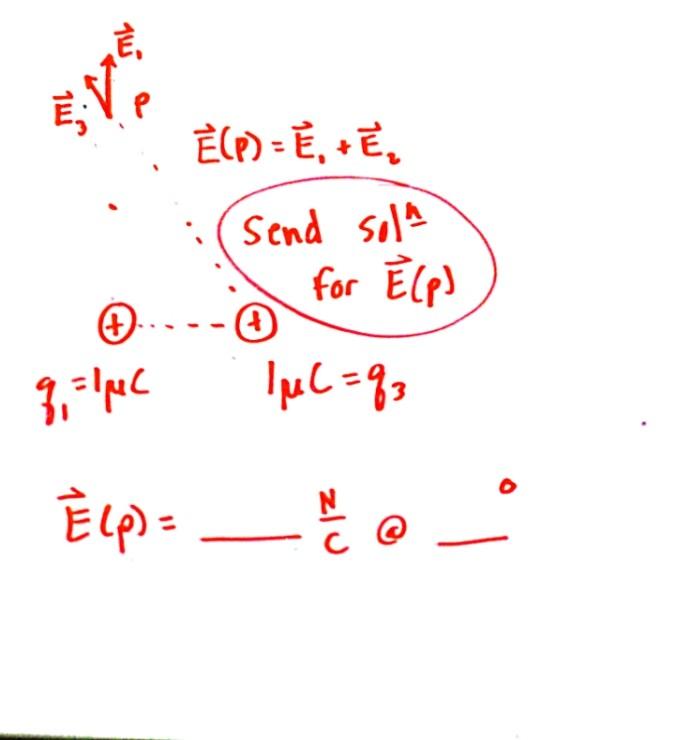 E⃗₁
E⃗₃ P
E⃗(P) = E⃗₁ + E⃗₂
Send solⁿ
for E⃗(p)
+ +
q₁ = 1μC 1μC = q₃
E⃗(p) = ___ N/C @ ___°